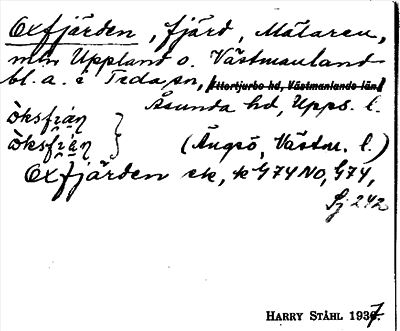 Oxfjärden, fjärd, Mälaren,
mln Uppland o. Västmanland
bl. a. i Teda sn, Yttertjurbo hd, Västmanlands län.
Åsunda hd, Upps. l.
(Ängsö, Västm. l.)
Oxfjärden ek, k G74 NO, G74,
Sj 242
HARRY STÅHL 1937.